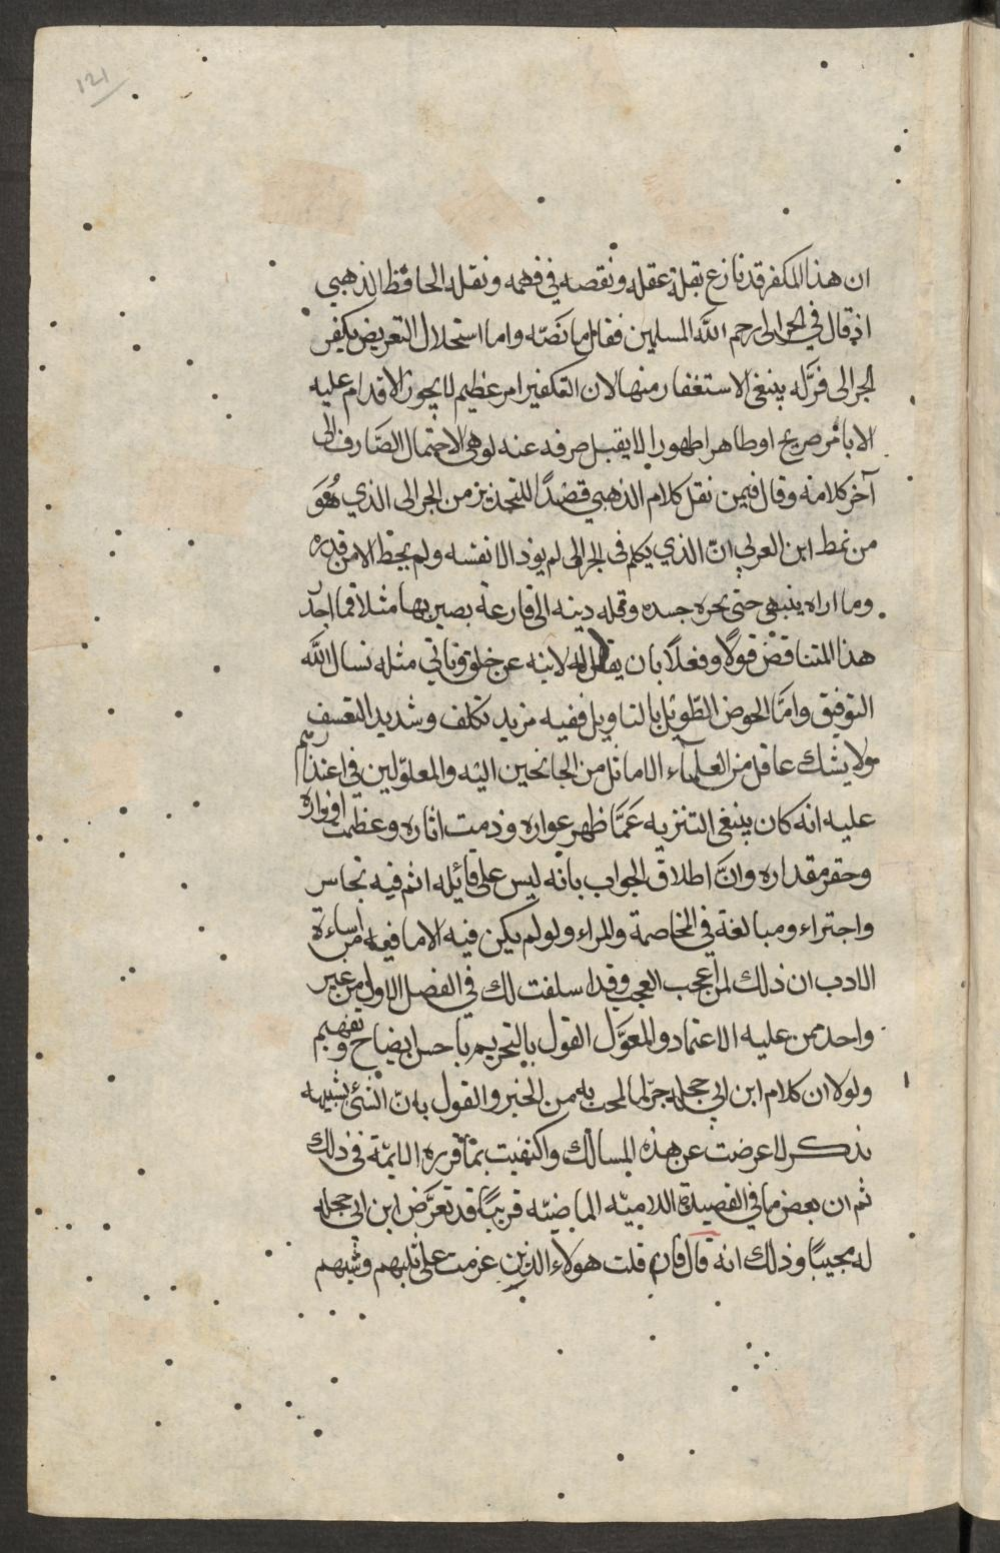 ١٢١
ان هذا المكفر قد نازع بقلة عقله ونقصه في فهمه ونقله الحافظ الذهبي
اذ قال في الحرالي رحم الله المسلمين فقال ما نصّه واما استحلال التعريض بكفر
الحرالى فزلّه ينبغى الاستغفار منها لان التكفير امر عظيم لا يجوز الاقدام عليه
الا بامر صريح او ظاهر اظهورا لا يقبل صرفه عنه لوهى الاحتمال الصّارف الى
آخر كلامه وقال فيمن نقل كلام الذهبي قصدًا للتحذير من الحرالى الذي هُوَ
من نمط ابن العربي انّ الذي تكلم فى الحرالى لم يوذ الا نفسه ولم يحط الا من قدره
وما اراه ينتهى حتى جسده دينه الى قارعة بها مثلا فما احدر
هذا المتناقض قولًا وفعلًا بان يقال له لا تنه عن خلق وتاتي مثله نسال الله
التوفيق وامّا الخوض الطّويل بالتاويل ففيه مزيد تكلف وشديد التعسف
ولا يشك عاقل من العلمآء الاماثل من الجانحين اليه والمعولين في اعتذارهم
عليه انه كان ينبغى التنزيه عَمَّا ظهر عواره وذمت اثاره وعظمت اوزاره
وحقر مقداره وانَّ اطلاق الجواب بانه ليس على قائله اثم فيه تجاسر
واجتراء ومبالغة في المخاصمة والمراء ولو لم يكن فيه الا ما فيه من اساءة
الادب ان ذلك لمن اعجب العجب وقد اسلفت لك في الفصل الاول من غير
واحد ممن عليه الاعتماد والمعوَّل القول بالتحريم باحسن ايضاح وتفهيم
ولولا ان كلام ابن ابي حجله جرّ لما من الخبر والقول بانّ الشئ بشبيهه
يذكر لاعرضت عن هذه المسالك واكتفيت بما قرره الايمّة في ذلك
ثم ان بعض ما في القصيدة اللاميّه الماضيّه قريبًا قد تعرَّض ابن ابي حجله
له مجيبًا وذلك انه قال فان قلت هولاء الذين عزمت على ثلبهم وشبهم